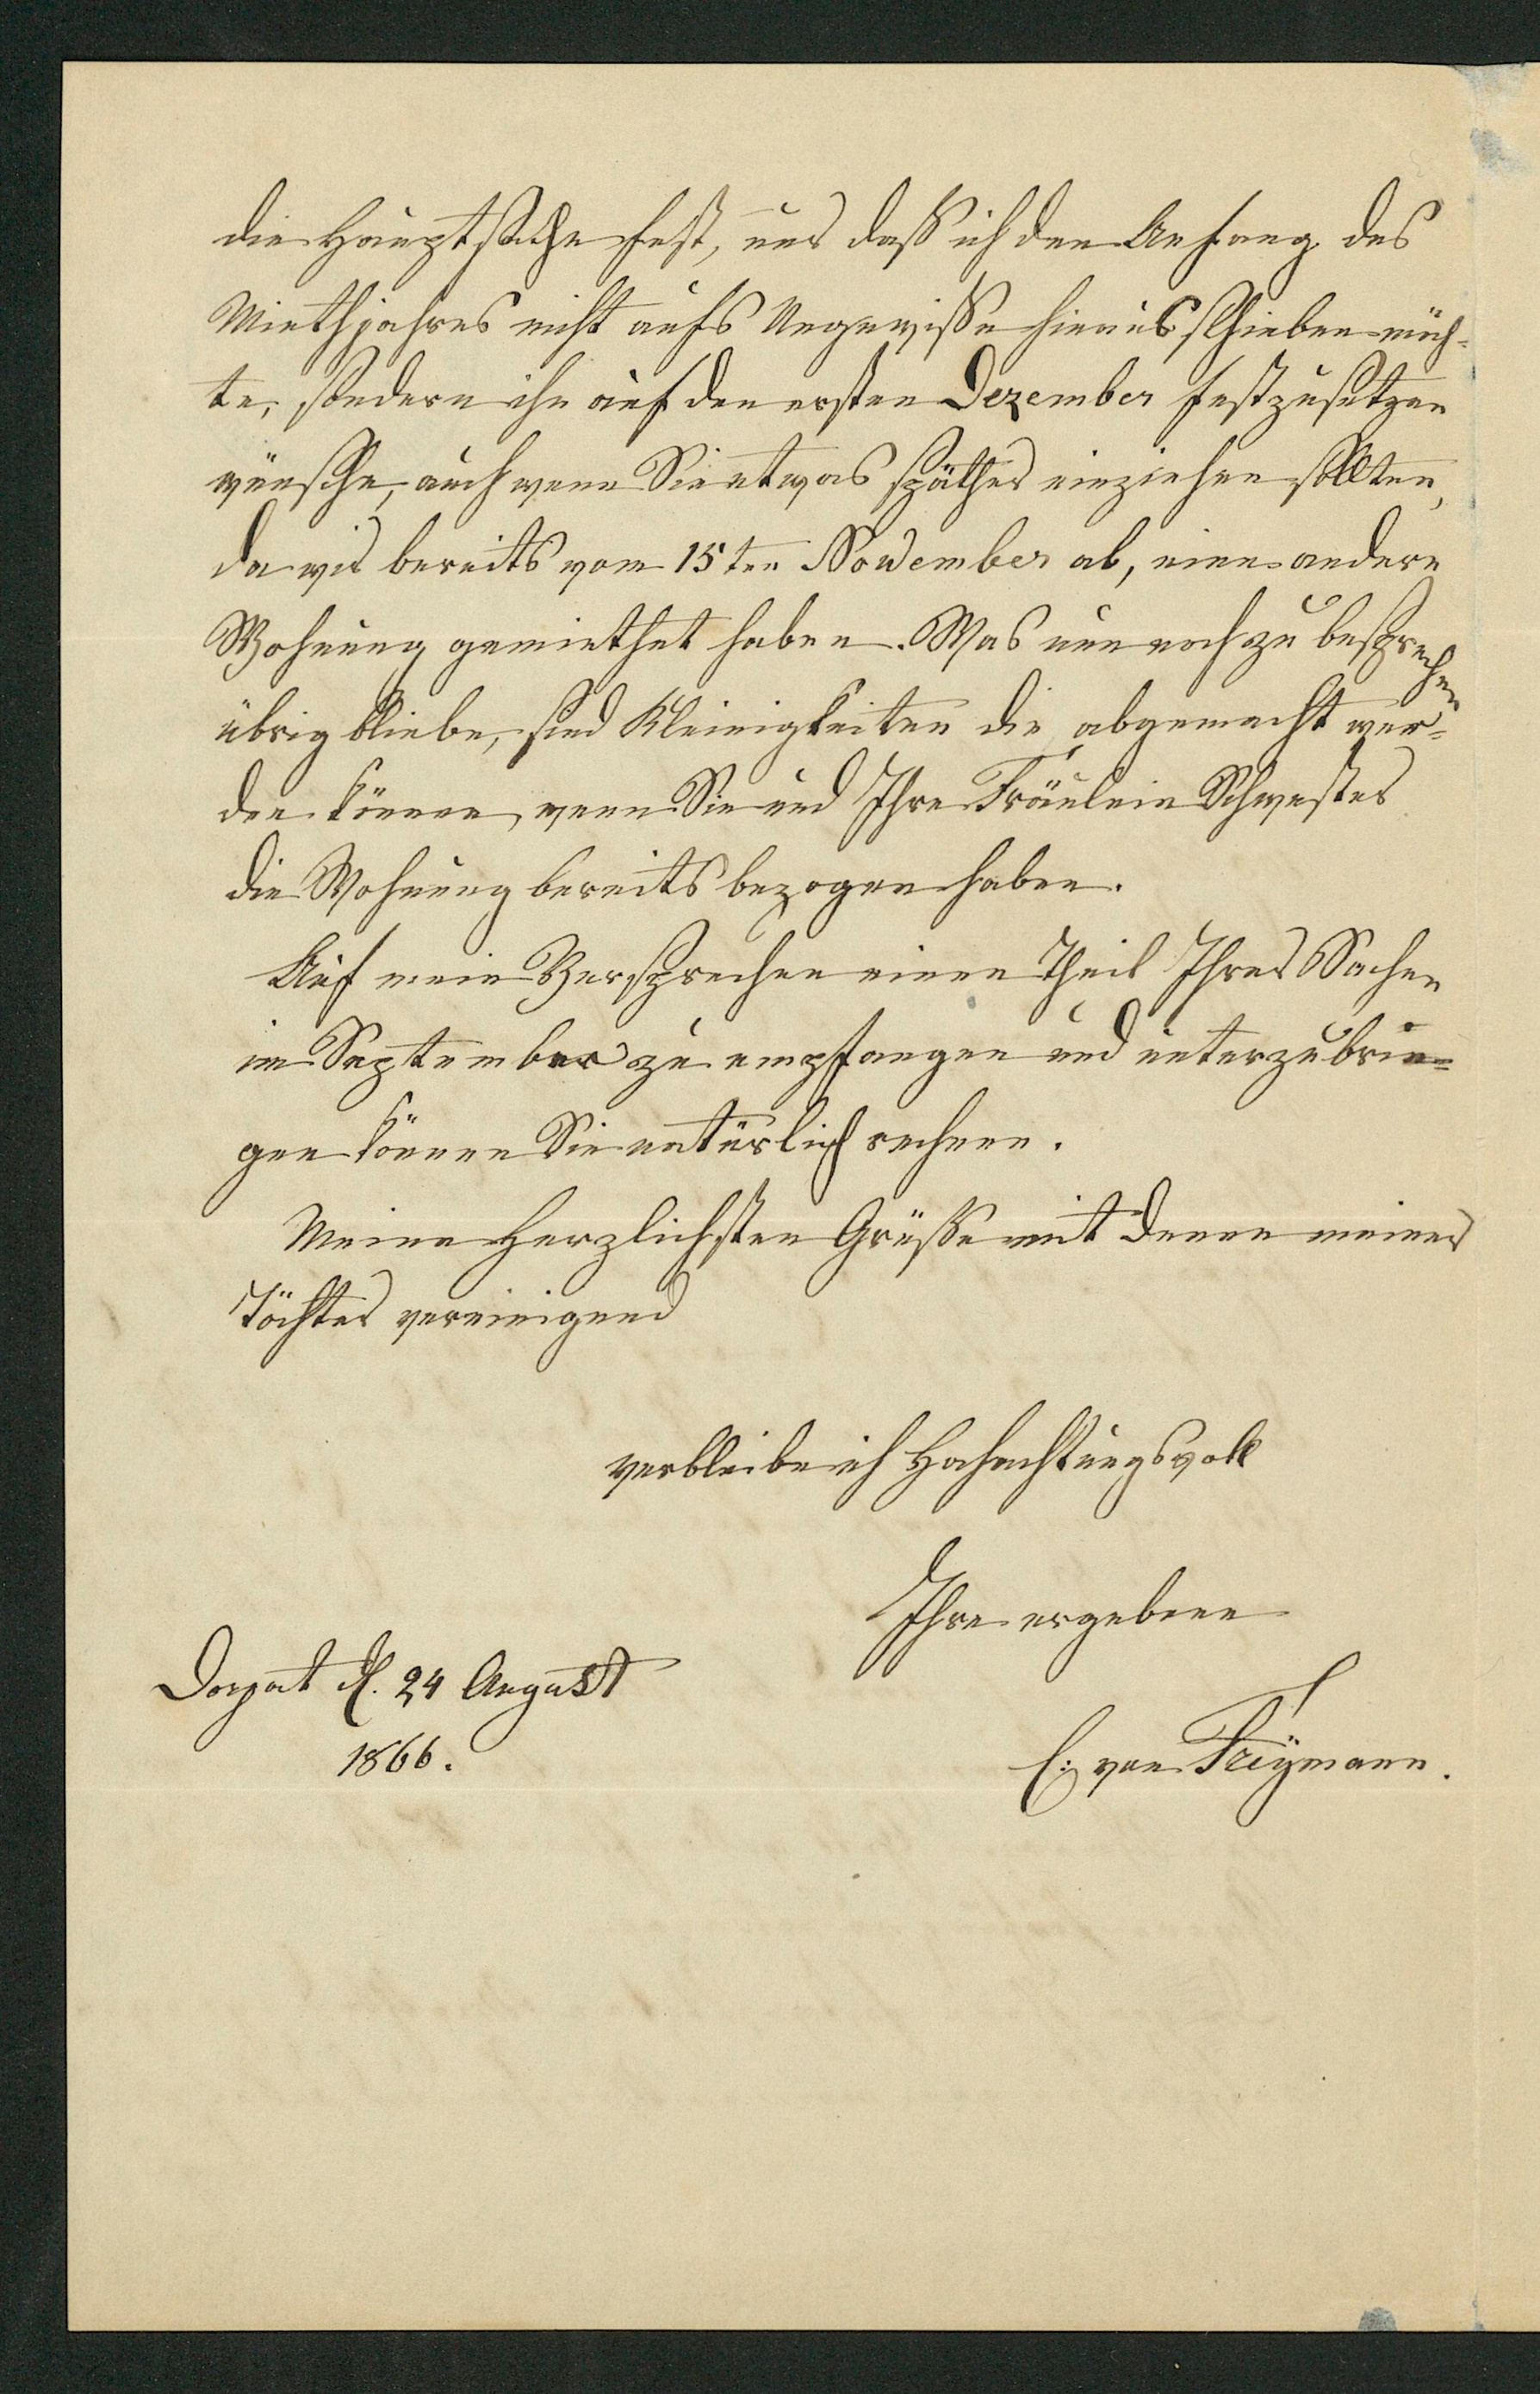 die Hauptsache fest, nur daß ich den Anfang des
Miethjahres nicht aufs Ungewisse hinausschieben möch-
te, sondern ihn auf den ersten Dezember festzusetzen
wünsche, auch wenn Sie etwas später einziehen sollten,
da wir bereits vom 15ten November ab, eine andere
Wohnung gemiethet haben. Was nun noch zu besprechen
übrig bliebe, sind Kleinigkeiten die abgemacht wer-
den können, wenn Sie und Ihre Fräulein Schwester
die Wohnung bereits bezogen haben.
Auf mein Versprechen einen Theil Ihrer Sachen
im September zu empfangen und unterzubrin-
gen können Sie natürlich rechnen.
Meine herzlichsten Grüße mit denen meiner
Töchter vereinigend
verbleibe ich Hochachtungsvoll
Ihre ergebene
Dorpat d. 24 August
1866.
C: von Freymann.